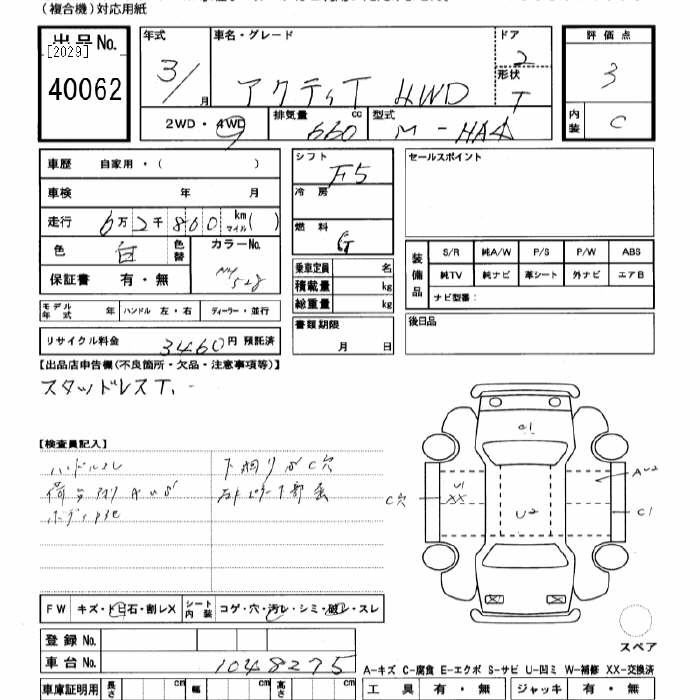 (複合機)対応用紙
出品No.
[2029]
40062
年式
3/
月
車名・グレード
アクティT 4WD
ドア
2
形状
T
評価点
3
内装
C
2WD・4WD
排気量
660
cc
型式
M-HA4
車歴 自家用・( )
車検 年 月
走行 6万2千860 km マイル( )
色 白 色替
カラーNo.
NH
528
保証書 有・無
モデル年式 年 ハンドル 左・右 ディーラー・並行
リサイクル料金 3460円 預託済
シフト
F5
冷房
燃料
G
乗車定員 名
積載量 kg
総重量 kg
書類期限
月 日
セールスポイント
装備品
S/R 純A/W P/S P/W ABS
純TV 純ナビ 革シート 外ナビ エアB
ナビ型番:
後日品
【出品店申告欄(不良箇所・欠品・注意事項等)】
スタッドレスT.
【検査員記入】
ハンドルスレ
下廻りサビC穴
C1
U1
XX
U2
AU2
C穴
C1
FW キズ・トビ石・割レX
シート内装 コゲ・穴・汚レ・シミ・破レ・スレ
登録No.
車台No. 1048275
スペア
A-キズ C-腐食 E-エクボ S-サビ U-凹ミ W-補修 XX-交換済
車庫証明用 長さ cm 幅 cm 高さ cm
工具 有・無 ジャッキ 有・無